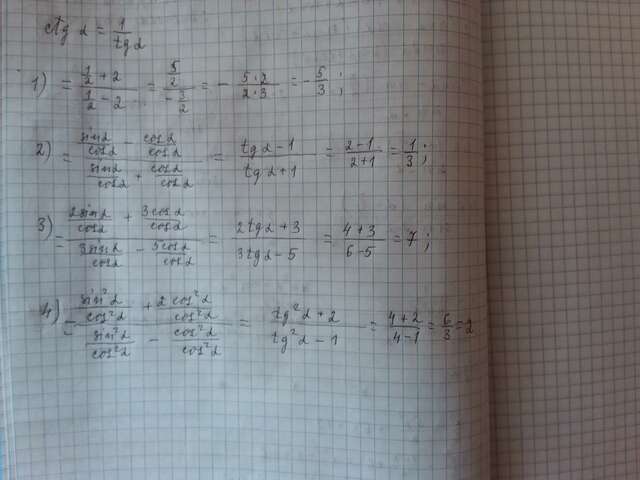 ctg α = 1/tg α
1) = (1/2 + 2)/(1/2 - 2) = (5/2)/(-3/2) = - (5·2)/(2·3) = - 5/3 ;
2) = (sin α/cos α - cos α/cos α)/(sin α/cos α + cos α/cos α) = (tg α - 1)/(tg α + 1) = (2 - 1)/(2 + 1) = 1/3 ;
3) = (2 sin α/cos α + 3 cos α/cos α)/(3 sin α/cos α - 5 cos α/cos α) = (2 tg α + 3)/(3 tg α - 5) = (4 + 3)/(6 - 5) = 7 ;
4) = (sin² α/cos² α + 2 cos² α/cos² α)/(sin² α/cos² α - cos² α/cos² α) = (tg² α + 2)/(tg² α - 1) = (4 + 2)/(4 - 1) = 6/3 = 2